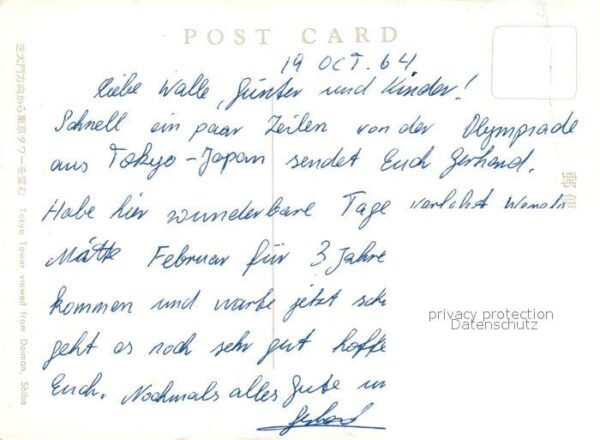 POST CARD
19 OCT. 64
Liebe Walle, Günter und Kinder!
Schnell ein paar Zeilen von der Olympiade
aus Tokyo-Japan sendet Euch Gerhard.
Habe hier wunderbare Tage verlebt
Februar für 3 Jahre
kommen und warte jetzt
geht es noch sehr gut hoffe
Euch. Nochmals alles Gute un
Gerhard
芝大門方向から東京タワーを望む Tokyo Tower viewed from Daimon, Shiba
郵便
privacy protection
Datenschutz